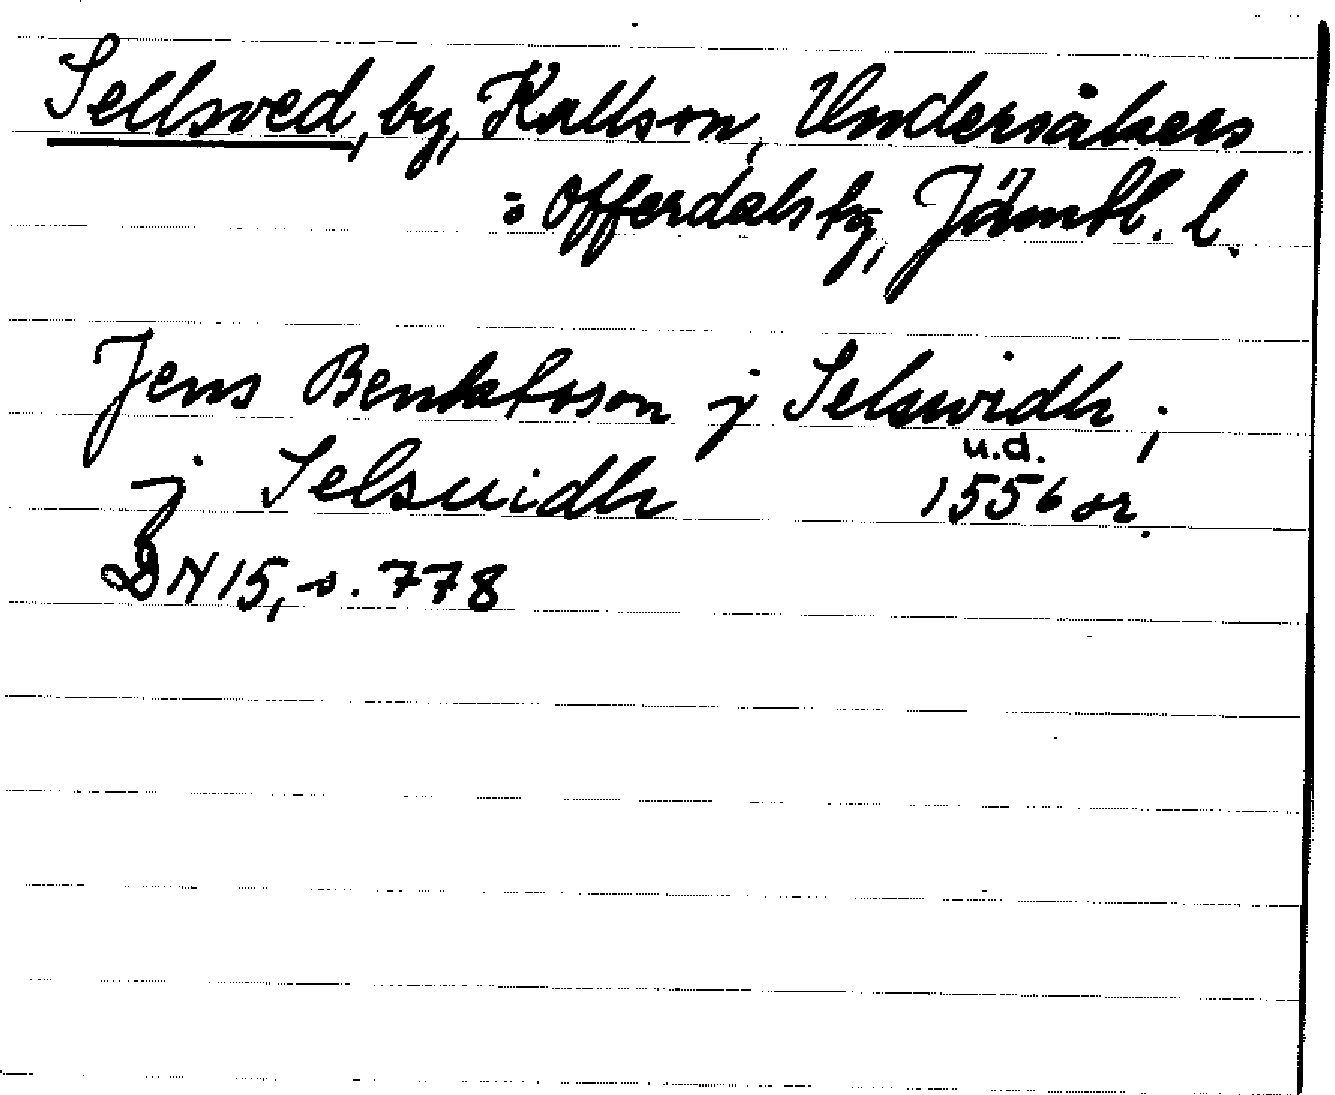 Sellsved, by, Kallsn, Undersåkers
: Offerdals tg, Jämtl. l.
Jens Bentktsson j Selswidh ;
u.d.
j Selsuidh 1556 or.
DN 15, s. 778